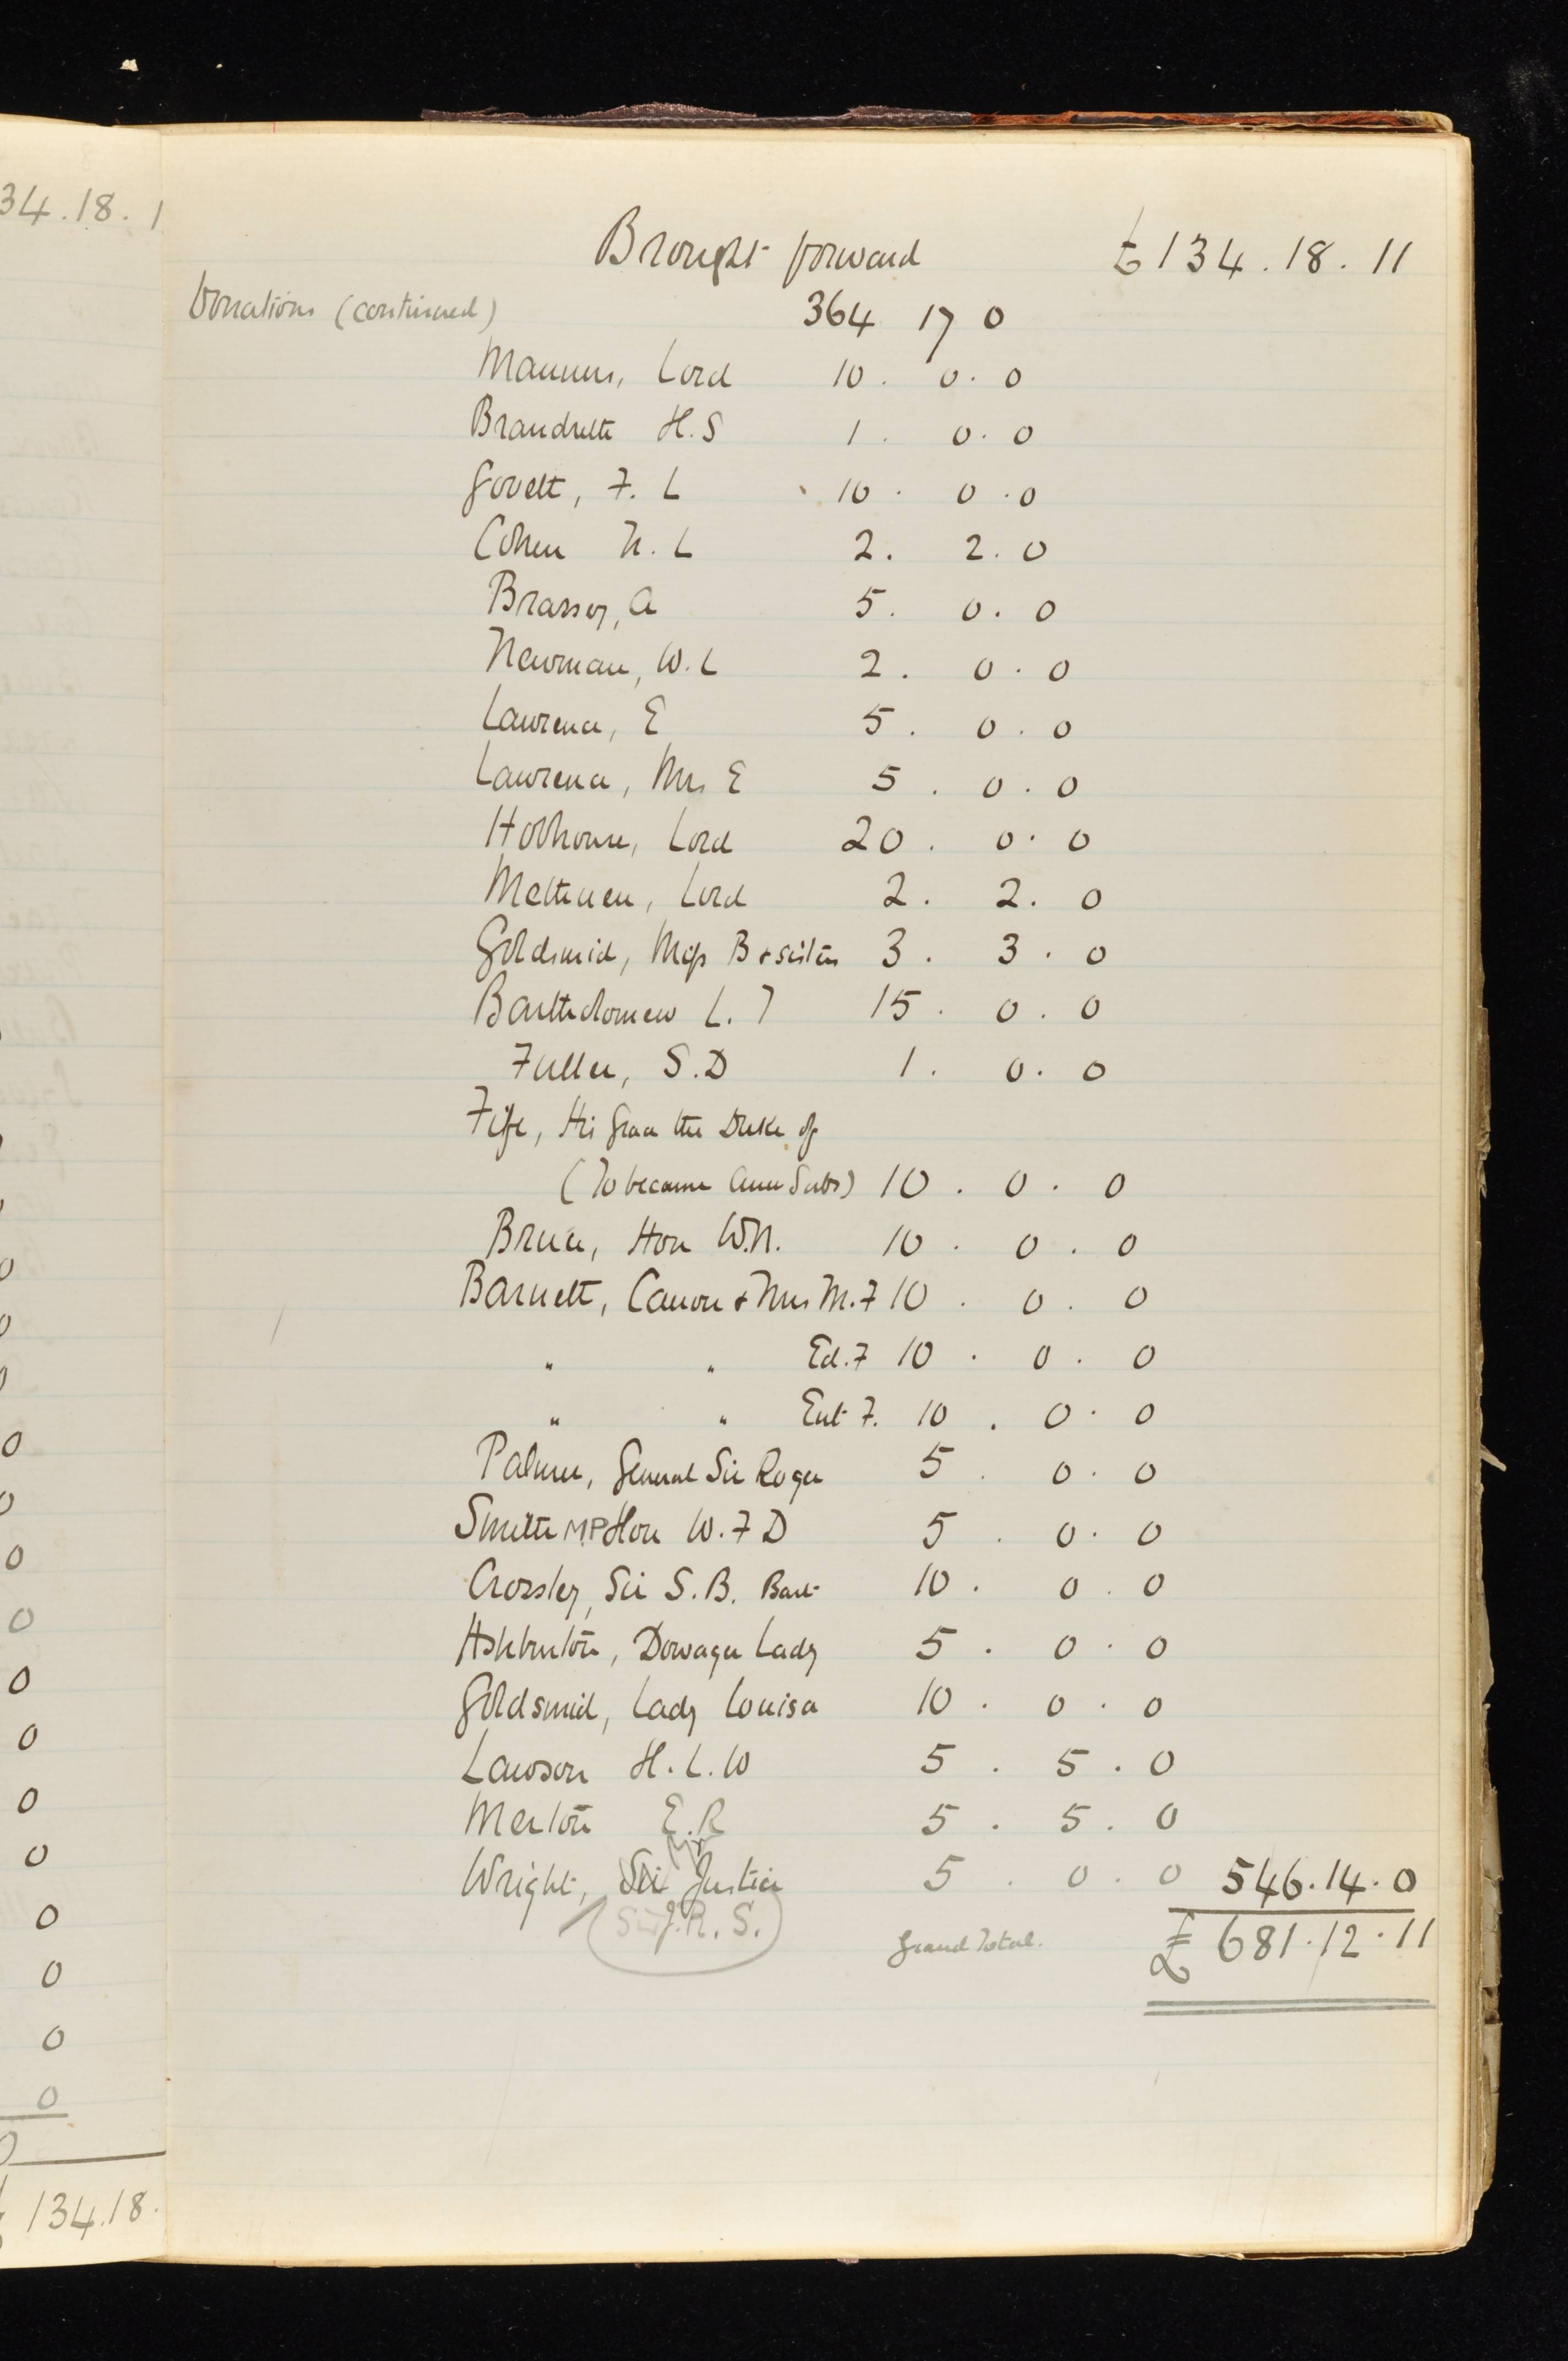 34.18.1
Brought forward £134.18.11
Donations (continued) 364 17 0
Manners, Lord 10. 0. 0
Brandreth H.S 1. 0. 0
Govett, F. L 10. 0. 0
Cohen N. L 2. 2. 0
Brassey, A 5. 0. 0
Newman, W.L 2. 0. 0
Lawrence, E 5. 0. 0
Lawrence, Mrs E 5. 0. 0
Hobhouse, Lord 20. 0. 0
Methuen, Lord 2. 2. 0
Goldsmid, Miss B & sisters 3. 3. 0
Bartholomew L. T 15. 0. 0
Fuller, S.D 1. 0. 0
Fife, His Grace the Duke of
(To become Ann Subs) 10. 0. 0
Bruce, Hon W.N. 10. 0. 0
Barnett, Canon & Mrs M.F 10. 0. 0
" " Ed.F 10. 0. 0
" " Ent F. 10. 0. 0
Palmer, General Sir Roger 5. 0. 0
Smith MP Hon W.F D 5. 0. 0
Crossley, Sir S.B. Bart 10. 0. 0
Ashburton, Dowager Lady 5. 0. 0
Goldsmid, Lady Louisa 10. 0. 0
Lawson H.L.W 5. 5. 0
Merton E.R 5. 5. 0
Wright, Sir Mr Justice 5. 0. 0 546.14.0
(Sir J.R.S.)
Grand Total. £ 681.12.11
£ 134.18.